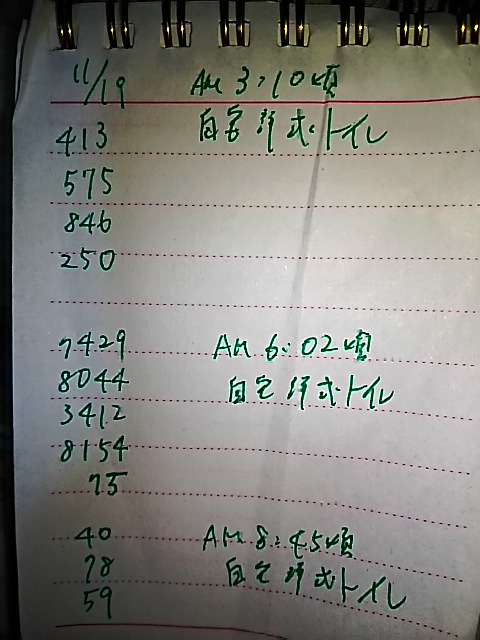 11/19 AM 3:10頃
413 自宅洋式トイレ
575
846
250
7429 AM 6:02頃
8044 自宅洋式トイレ
3412
8154
75
40 AM 8:45頃
78 自宅洋式トイレ
59